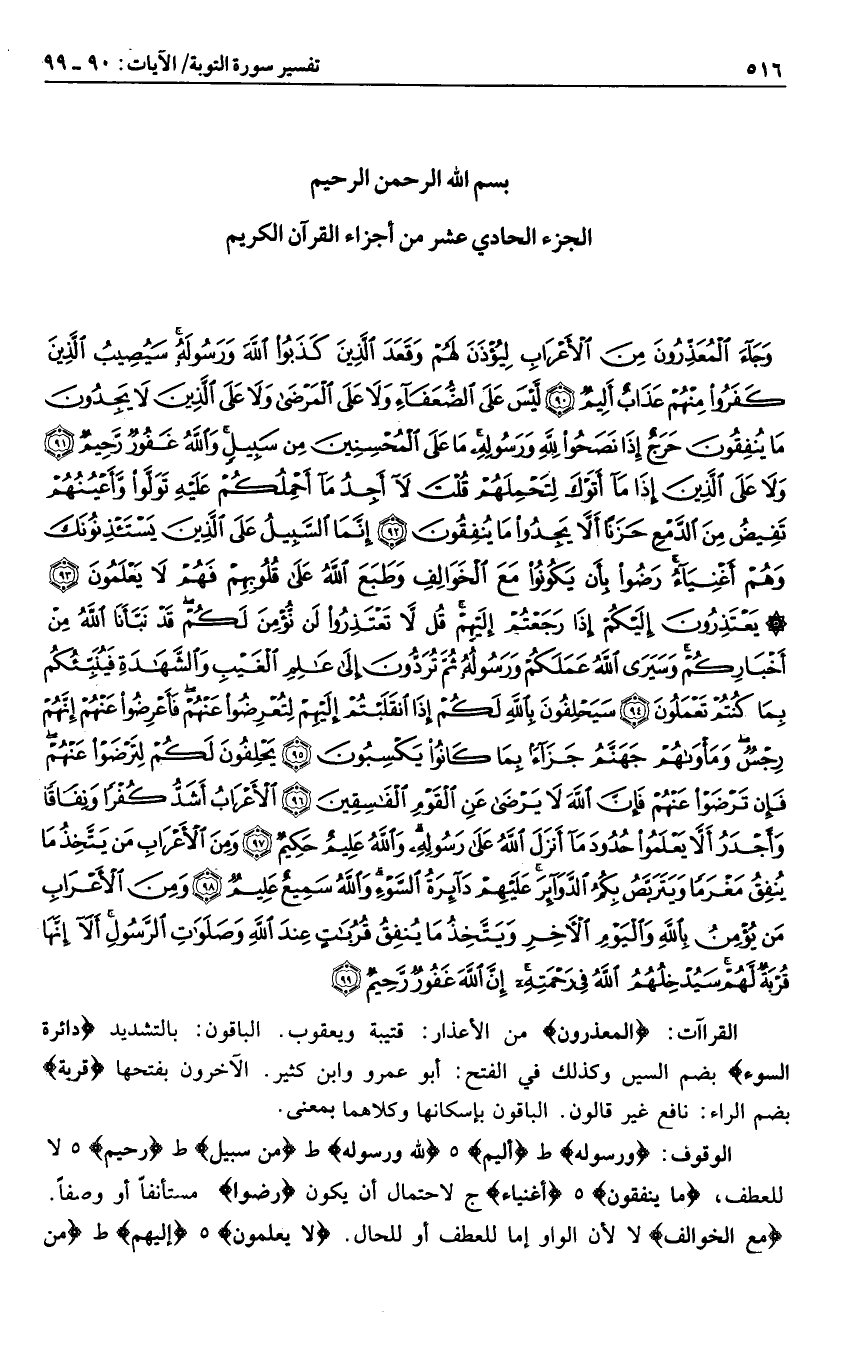 ٥١٦ تفسير سورة التوبة/ الآيات: ٩٠ ـ ٩٩
بسم الله الرحمن الرحيم
الجزء الحادي عشر من أجزاء القرآن الكريم
وَجَآءَ ٱلْمُعَذِّرُونَ مِنَ ٱلْأَعْرَابِ لِيُؤْذَنَ لَهُمْ وَقَعَدَ ٱلَّذِينَ كَذَبُوا۟ ٱللَّهَ وَرَسُولَهُۥ ۚ سَيُصِيبُ ٱلَّذِينَ
كَفَرُوا۟ مِنْهُمْ عَذَابٌ أَلِيمٌ ﴿٩٠﴾ لَّيْسَ عَلَى ٱلضُّعَفَآءِ وَلَا عَلَى ٱلْمَرْضَىٰ وَلَا عَلَى ٱلَّذِينَ لَا يَجِدُونَ
مَا يُنفِقُونَ حَرَجٌ إِذَا نَصَحُوا۟ لِلَّهِ وَرَسُولِهِۦ ۚ مَا عَلَى ٱلْمُحْسِنِينَ مِن سَبِيلٍ ۚ وَٱللَّهُ غَفُورٌ رَّحِيمٌ ﴿٩١﴾
وَلَا عَلَى ٱلَّذِينَ إِذَا مَآ أَتَوْكَ لِتَحْمِلَهُمْ قُلْتَ لَآ أَجِدُ مَآ أَحْمِلُكُمْ عَلَيْهِ تَوَلَّوا۟ وَّأَعْيُنُهُمْ
تَفِيضُ مِنَ ٱلدَّمْعِ حَزَنًا أَلَّا يَجِدُوا۟ مَا يُنفِقُونَ ﴿٩٢﴾ إِنَّمَا ٱلسَّبِيلُ عَلَى ٱلَّذِينَ يَسْتَـْٔذِنُونَكَ
وَهُمْ أَغْنِيَآءُ ۚ رَضُوا۟ بِأَن يَكُونُوا۟ مَعَ ٱلْخَوَالِفِ وَطَبَعَ ٱللَّهُ عَلَىٰ قُلُوبِهِمْ فَهُمْ لَا يَعْلَمُونَ ﴿٩٣﴾
۞ يَعْتَذِرُونَ إِلَيْكُمْ إِذَا رَجَعْتُمْ إِلَيْهِمْ ۚ قُل لَّا تَعْتَذِرُوا۟ لَن نُّؤْمِنَ لَكُمْ ۖ قَدْ نَبَّأَنَا ٱللَّهُ مِنْ
أَخْبَارِكُمْ ۚ وَسَيَرَى ٱللَّهُ عَمَلَكُمْ وَرَسُولُهُۥ ثُمَّ تُرَدُّونَ إِلَىٰ عَـٰلِمِ ٱلْغَيْبِ وَٱلشَّهَـٰدَةِ فَيُنَبِّئُكُم
بِمَا كُنتُمْ تَعْمَلُونَ ﴿٩٤﴾ سَيَحْلِفُونَ بِٱللَّهِ لَكُمْ إِذَا ٱنقَلَبْتُمْ إِلَيْهِمْ لِتُعْرِضُوا۟ عَنْهُمْ ۖ فَأَعْرِضُوا۟ عَنْهُمْ ۖ إِنَّهُمْ
رِجْسٌ ۖ وَمَأْوَىٰهُمْ جَهَنَّمُ جَزَآءًۢ بِمَا كَانُوا۟ يَكْسِبُونَ ﴿٩٥﴾ يَحْلِفُونَ لَكُمْ لِتَرْضَوْا۟ عَنْهُمْ ۖ
فَإِن تَرْضَوْا۟ عَنْهُمْ فَإِنَّ ٱللَّهَ لَا يَرْضَىٰ عَنِ ٱلْقَوْمِ ٱلْفَـٰسِقِينَ ﴿٩٦﴾ ٱلْأَعْرَابُ أَشَدُّ كُفْرًا وَنِفَاقًا
وَأَجْدَرُ أَلَّا يَعْلَمُوا۟ حُدُودَ مَآ أَنزَلَ ٱللَّهُ عَلَىٰ رَسُولِهِۦ ۗ وَٱللَّهُ عَلِيمٌ حَكِيمٌ ﴿٩٧﴾ وَمِنَ ٱلْأَعْرَابِ مَن يَتَّخِذُ مَا
يُنفِقُ مَغْرَمًا وَيَتَرَبَّصُ بِكُمُ ٱلدَّوَآئِرَ ۚ عَلَيْهِمْ دَآئِرَةُ ٱلسَّوْءِ ۗ وَٱللَّهُ سَمِيعٌ عَلِيمٌ ﴿٩٨﴾ وَمِنَ ٱلْأَعْرَابِ
مَن يُؤْمِنُ بِٱللَّهِ وَٱلْيَوْمِ ٱلْـَٔاخِرِ وَيَتَّخِذُ مَا يُنفِقُ قُرُبَـٰتٍ عِندَ ٱللَّهِ وَصَلَوَٰتِ ٱلرَّسُولِ ۚ أَلَآ إِنَّهَا
قُرْبَةٌ لَّهُمْ ۚ سَيُدْخِلُهُمُ ٱللَّهُ فِى رَحْمَتِهِۦٓ ۗ إِنَّ ٱللَّهَ غَفُورٌ رَّحِيمٌ ﴿٩٩﴾
القراآت: ﴿المعذرون﴾ من الأعذار: قتيبة ويعقوب. الباقون: بالتشديد ﴿دائرة
السوء﴾ بضم السين وكذلك في الفتح: أبو عمرو وابن كثير. الآخرون بفتحها ﴿قربة﴾
بضم الراء: نافع غير قالون. الباقون بإسكانها وكلاهما بمعنى.
الوقوف: ﴿ورسوله﴾ ط ﴿أليم﴾ ٥ ﴿لله ورسوله﴾ ط ﴿من سبيل﴾ ط ﴿رحيم﴾ ٥ لا
للعطف، ﴿ما ينفقون﴾ ٥ ﴿أغنياء﴾ ج لاحتمال أن يكون ﴿رضوا﴾ مستأنفاً أو وصفاً.
﴿مع الخوالف﴾ لا لأن الواو إما للعطف أو للحال. ﴿لا يعلمون﴾ ٥ ﴿إليهم﴾ ط ﴿من